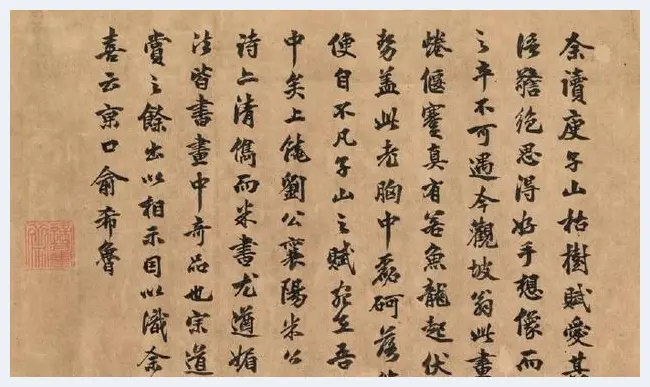 余讀庾子山枯樹賦愛其
語警絶思得好手想像而
之卒不可遇今觀坡翁此畫
蜷偃蹇真有若魚龍起伏
勢蓋此老胸中磊砢落
使自不凡子山之賦在吾
中矣上饒劉公襄陽米公
詩上清儁而米書尤遒媚
法皆書畫中奇品也宗道
賞之餘出以相示因以識余
喜云京口俞希魯